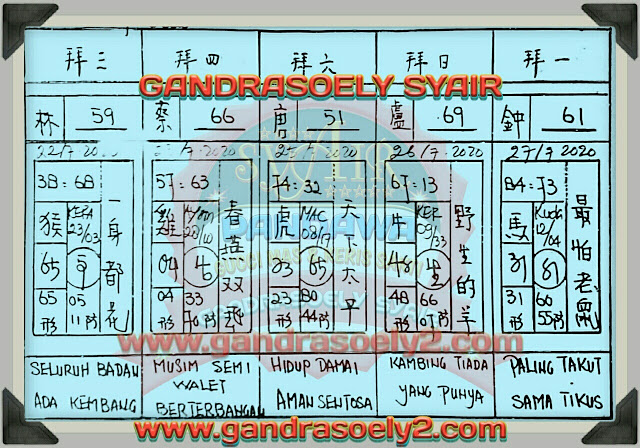 拜三 拜四 拜六 拜日 拜一
GANDRASOELY SYAIR
林 59 蔡 66 唐 51 盧 69 鈡 61
22/7 2020 7.2020 7 2020 26/7.2020 27/7 2020
3B = 6B 57 = 63 74 = 32 67 = 13 84 = 73
猴 KERA 23/03 一身都花
28/10 春燕双飛
虎 MAC 08/17 天下太平
牛 KER 09/33 野生的羊
馬 Kuda 12/04 最怕老鼠
65 5 04 46 23 65 48 42 31 61
65 05 04 33 23 80 48 66 31 60
形 11 形 形 44 形 07 形 55
www.gandrasoely2.com
SELURUH BADAN
ADA KEMBANG
MUSIM SEMI
WALET
BERTERBANGAN
HIDUP DAMAI
AMAN SENTOSA
KAMBING TIADA
YANG PUNYA
PALING TAKUT
SAMA TIKUS
www.gandrasoely2.com